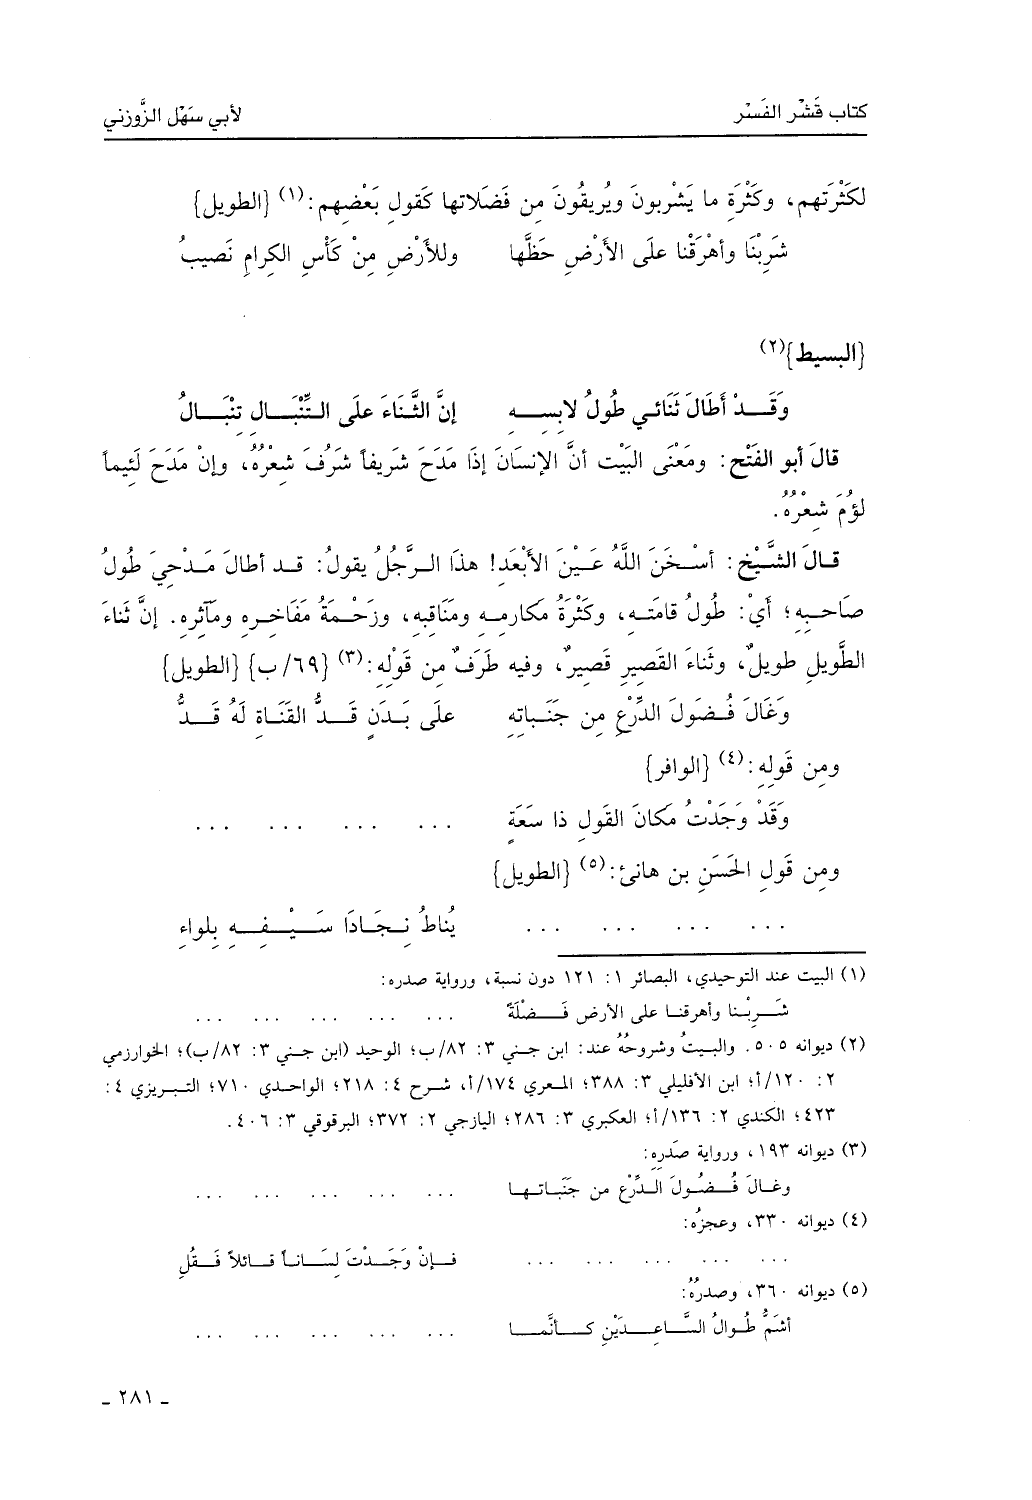 كتاب قَشْر الفَسْر
لأبي سَهْل الزَّوزني
لكَثْرَتهم، وكَثْرَةِ ما يَشْربونَ ويُريقُونَ مِن فَضَلاتها كَقولِ بَعْضِهم:(١) {الطويل}
شَرِبْنَا وأهْرَقْنا علَى الأرْضِ حَظَّها وللأَرْضِ مِنْ كَأْسِ الكِرامِ نَصيبُ
{البسيط}(٢)
وَقَدْ أَطَالَ ثَنَائي طُولُ لابِسِهِ إنَّ الثَّنَاءَ علَى التِّنْبَالِ تنْبَالُ
قالَ أبو الفَتْحِ: ومَعْنَى البَيْتِ أنَّ الإنسَانَ إذَا مَدَحَ شَريفاً شَرُفَ شِعْرُهُ، وإنْ مَدَحَ لَئيماً
لؤُمَ شِعْرُهُ.
قالَ الشَّيْخُ: أسْخَنَ اللَّهُ عَيْنَ الأبْعَدِ! هذَا الرَّجُلُ يقولُ: قد أطالَ مَدْحِيَ طُولُ
صَاحبِهِ؛ أيْ: طُولُ قامَتهِ، وكَثْرَةُ مَكارمِهِ ومَنَاقبِهِ، وزَحْمَةُ مَفَاخرِهِ ومَآثرِهِ. إنَّ ثناءَ
الطَّويلِ طويلٌ، وثَناءَ القَصيرِ قَصيرٌ، وفيه طَرَفٌ من قَوْلِهِ:(٣) {٦٩/ب} {الطويل}
وَغَالَ فُضُولَ الدِّرْعِ مِن جَنَباتِهِ علَى بَدَنٍ قَدُّ القَنَاةِ لَهُ قَدُّ
ومِن قَولِهِ:(٤) {الوافر}
وَقَدْ وَجَدْتُ مَكانَ القَولِ ذا سَعَةٍ ... ... ... ...
ومِن قَولِ الحَسَنِ بنِ هانئ:(٥) {الطويل}
... ... ... ... يُناطُ نِجَادَا سَيْفِهِ بِلِواءِ
(١) البيت عند التوحيدي، البصائر ١: ١٢١ دون نسبة، ورواية صدره:
شَرِبْنا وأهرقنا على الأرض فَضْلَةً ... ... ... ... ...
(٢) ديوانه ٥٠٥. والبيتُ وشروحُهُ عند: ابن جني ٣: ٨٢/ب؛ الوحيد (ابن جني ٣: ٨٢/ب)؛ الخوارزمي
٢: ١٢٠/أ؛ ابن الأفليلي ٣: ٣٨٨؛ المعري ١٧٤/أ، شرح ٤: ٢١٨؛ الواحدي ٧١٠؛ التبريزي ٤:
٤٢٣؛ الكندي ٢: ١٣٦/أ؛ العكبري ٣: ٢٨٦؛ اليازجي ٢: ٣٧٢؛ البرقوقي ٣: ٤٠٦.
(٣) ديوانه ١٩٣، ورواية صَدرِهِ:
وغالَ فُضُولَ الدِّرْعِ من جَنَباتها ... ... ... ... ...
(٤) ديوانه ٣٣٠، وعجزُه:
... ... ... ... فإنْ وَجَدْتَ لِسَاناً قائلاً فَقُلِ
(٥) ديوانه ٣٦٠، وصدرُهُ:
أشَمُّ طُوالُ السَّاعِدَيْنِ كأنَّما ... ... ... ... ...
ـ ٢٨١ ـ